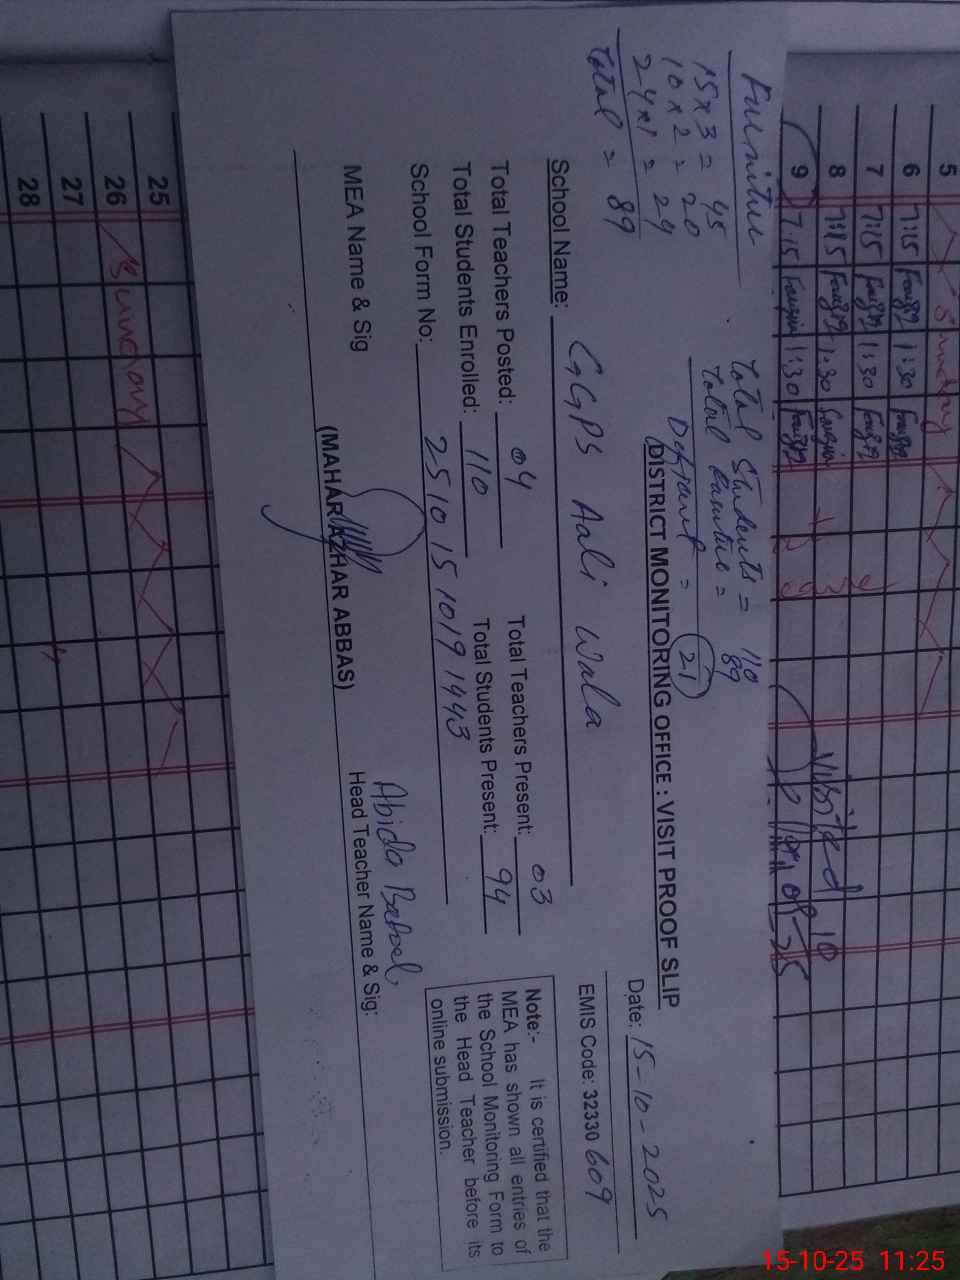 5 Sunday
6 7:15 1:30
7 7:15 1:30
8 7:15 1:30
9 7:15 1:30
Visited
Furniture
15 x 3 = 45
10 x 2 = 20
24 x 1 = 24
Total = 89
Total Students = 110
89
21
DISTRICT MONITORING OFFICE : VISIT PROOF SLIP
Date: 15-10-2025
EMIS Code: 32330 609
School Name: GGPS Aali Wala
Total Teachers Posted: 04 Total Teachers Present: 03
Total Students Enrolled: 110 Total Students Present: 94
School Form No: 25101510191443
Note:- It is certified that the
MEA has shown all entries of
the School Monitoring Form to
the Head Teacher before its
online submission.
Abida Batool
MEA Name & Sig Head Teacher Name & Sig:
(MAHAR AZHAR ABBAS)
25
26 Sunday
27
28
15-10-25 11:25